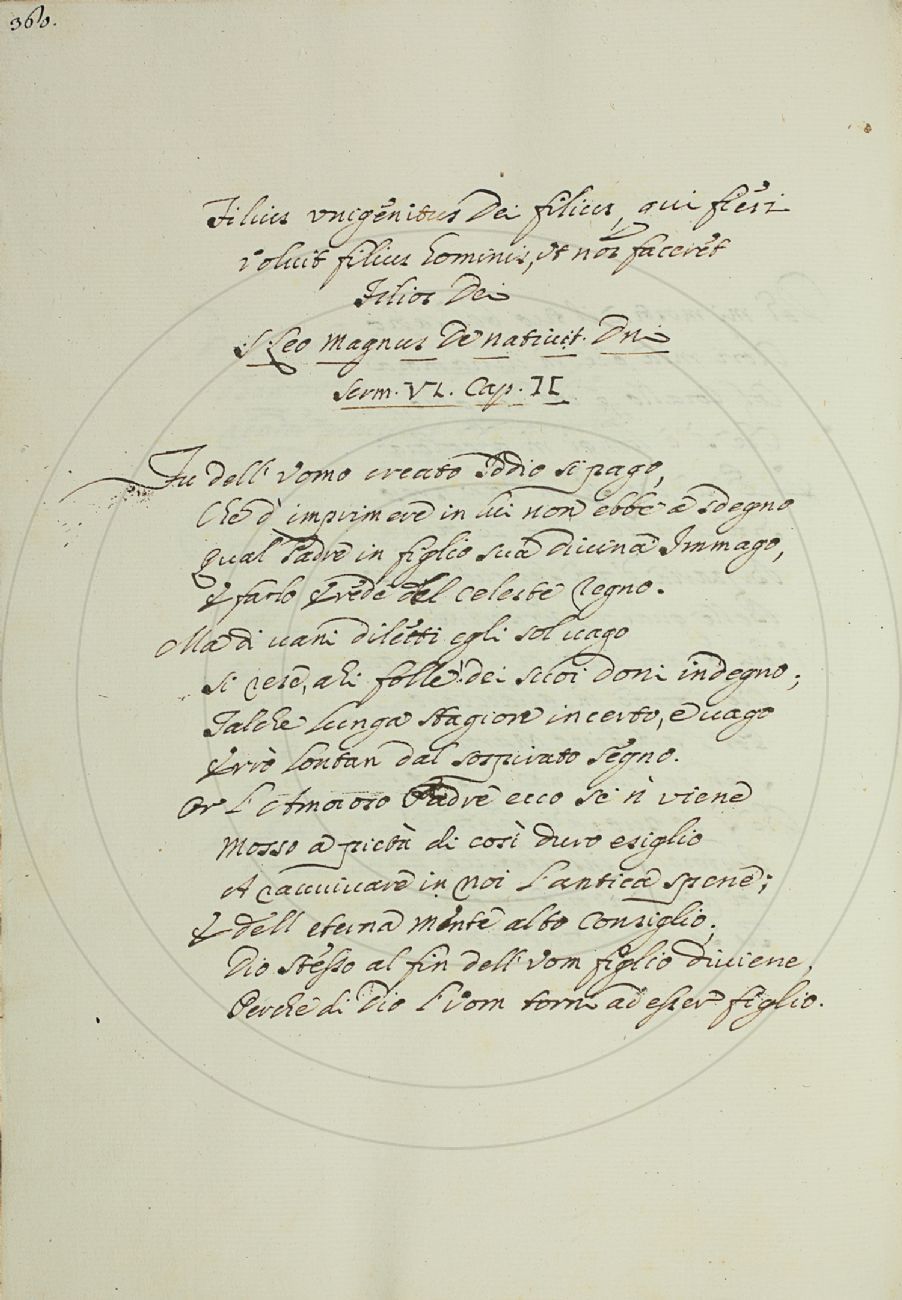 360.
Filius unigenitus Dei filius, qui fieri
voluit filius hominis, ut nos faceret
Filios Dei
S Leo Magnus De nativit. Dni
Serm. VI. Cap. II
Fu dell' Vomo creato Iddio sì pago,
Che d' imprimere in lui non ebbe a sdegno
Qual Padre in figlio sua divina Immago,
E farlo Erede del celeste Regno.
Ma di vani diletti egli sol vago
si rese, ahi folle! dei suoi doni indegno;
Talche lunga stagione incerto, e vago
Errò lontan dal sospirato segno.
Or L'Amoroso Padre ecco se n viene
Mosso a pietà di così duro esiglio
A ravvivare in noi l'antica spene;
E dell eterna Mente alto Consiglio,
Dio stesso al fin dell' Vom figlio diviene,
Perche di Dio l'Vom torni ad esser figlio.